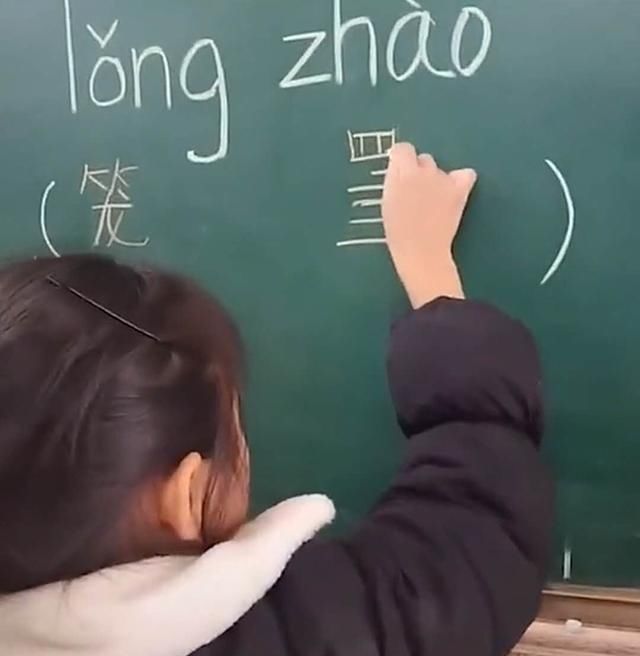 lǒng zhào
(笼 )